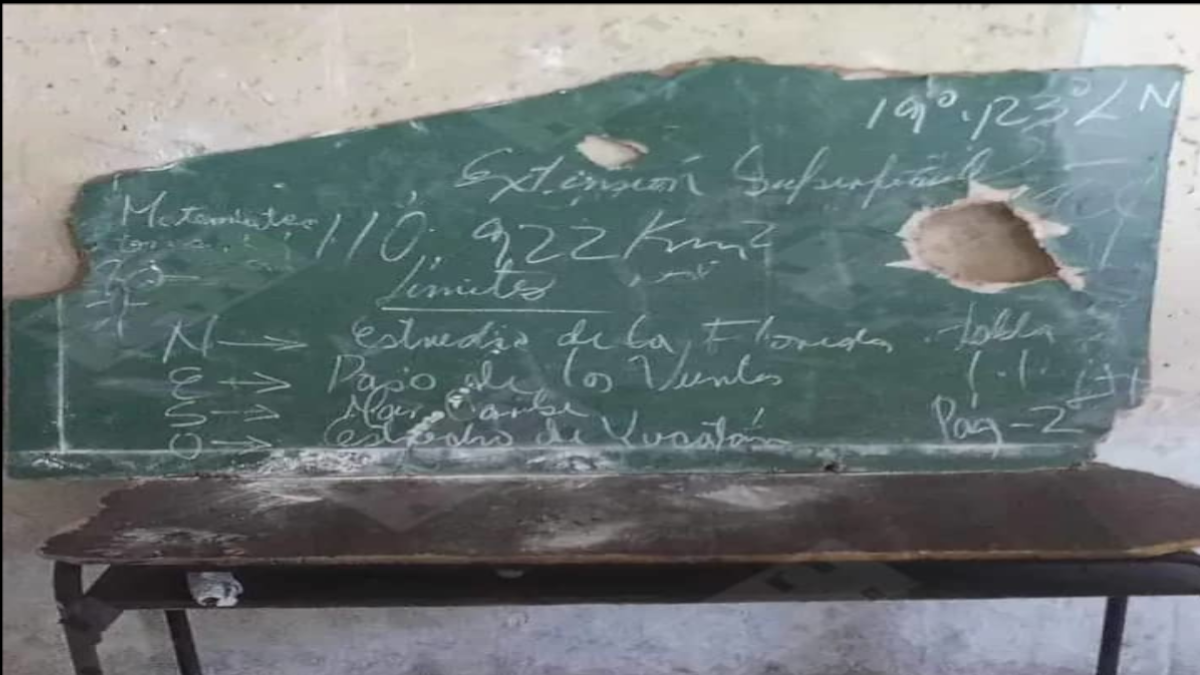 19° y 23° L N
Extensión Superficial
110. 922 Km²
Límites
N → Estrecho de la Florida
E → Paso de los Vientos
S → Mar Caribe
O → Estrecho de Yucatán
tabla
1.1
Pág-2